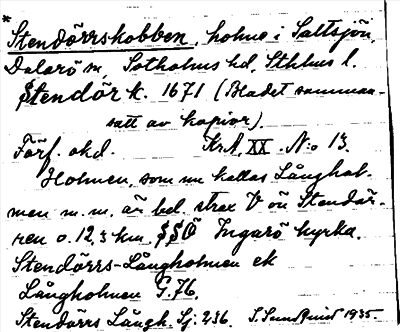 * Stendörrskobben, holme i Saltsjön,
Dalarö sn, Sotholms hd, Sthlms l.
Stendör k. 1671 (Bladet samman-
satt av kopior).
Förf. okd. Kr.A. XX. N:o 13.
Holmen, som nu kallas Långhol-
men m. m. är bel. strax V ön Stendör-
ren o. 12,3 km. SSÖ Ingarö kyrka.
Stendörrs-Långholmen ek
Långholmen G. 76.
Stendörrs Långh. Sj. 236. S. Sundqvist 1935.